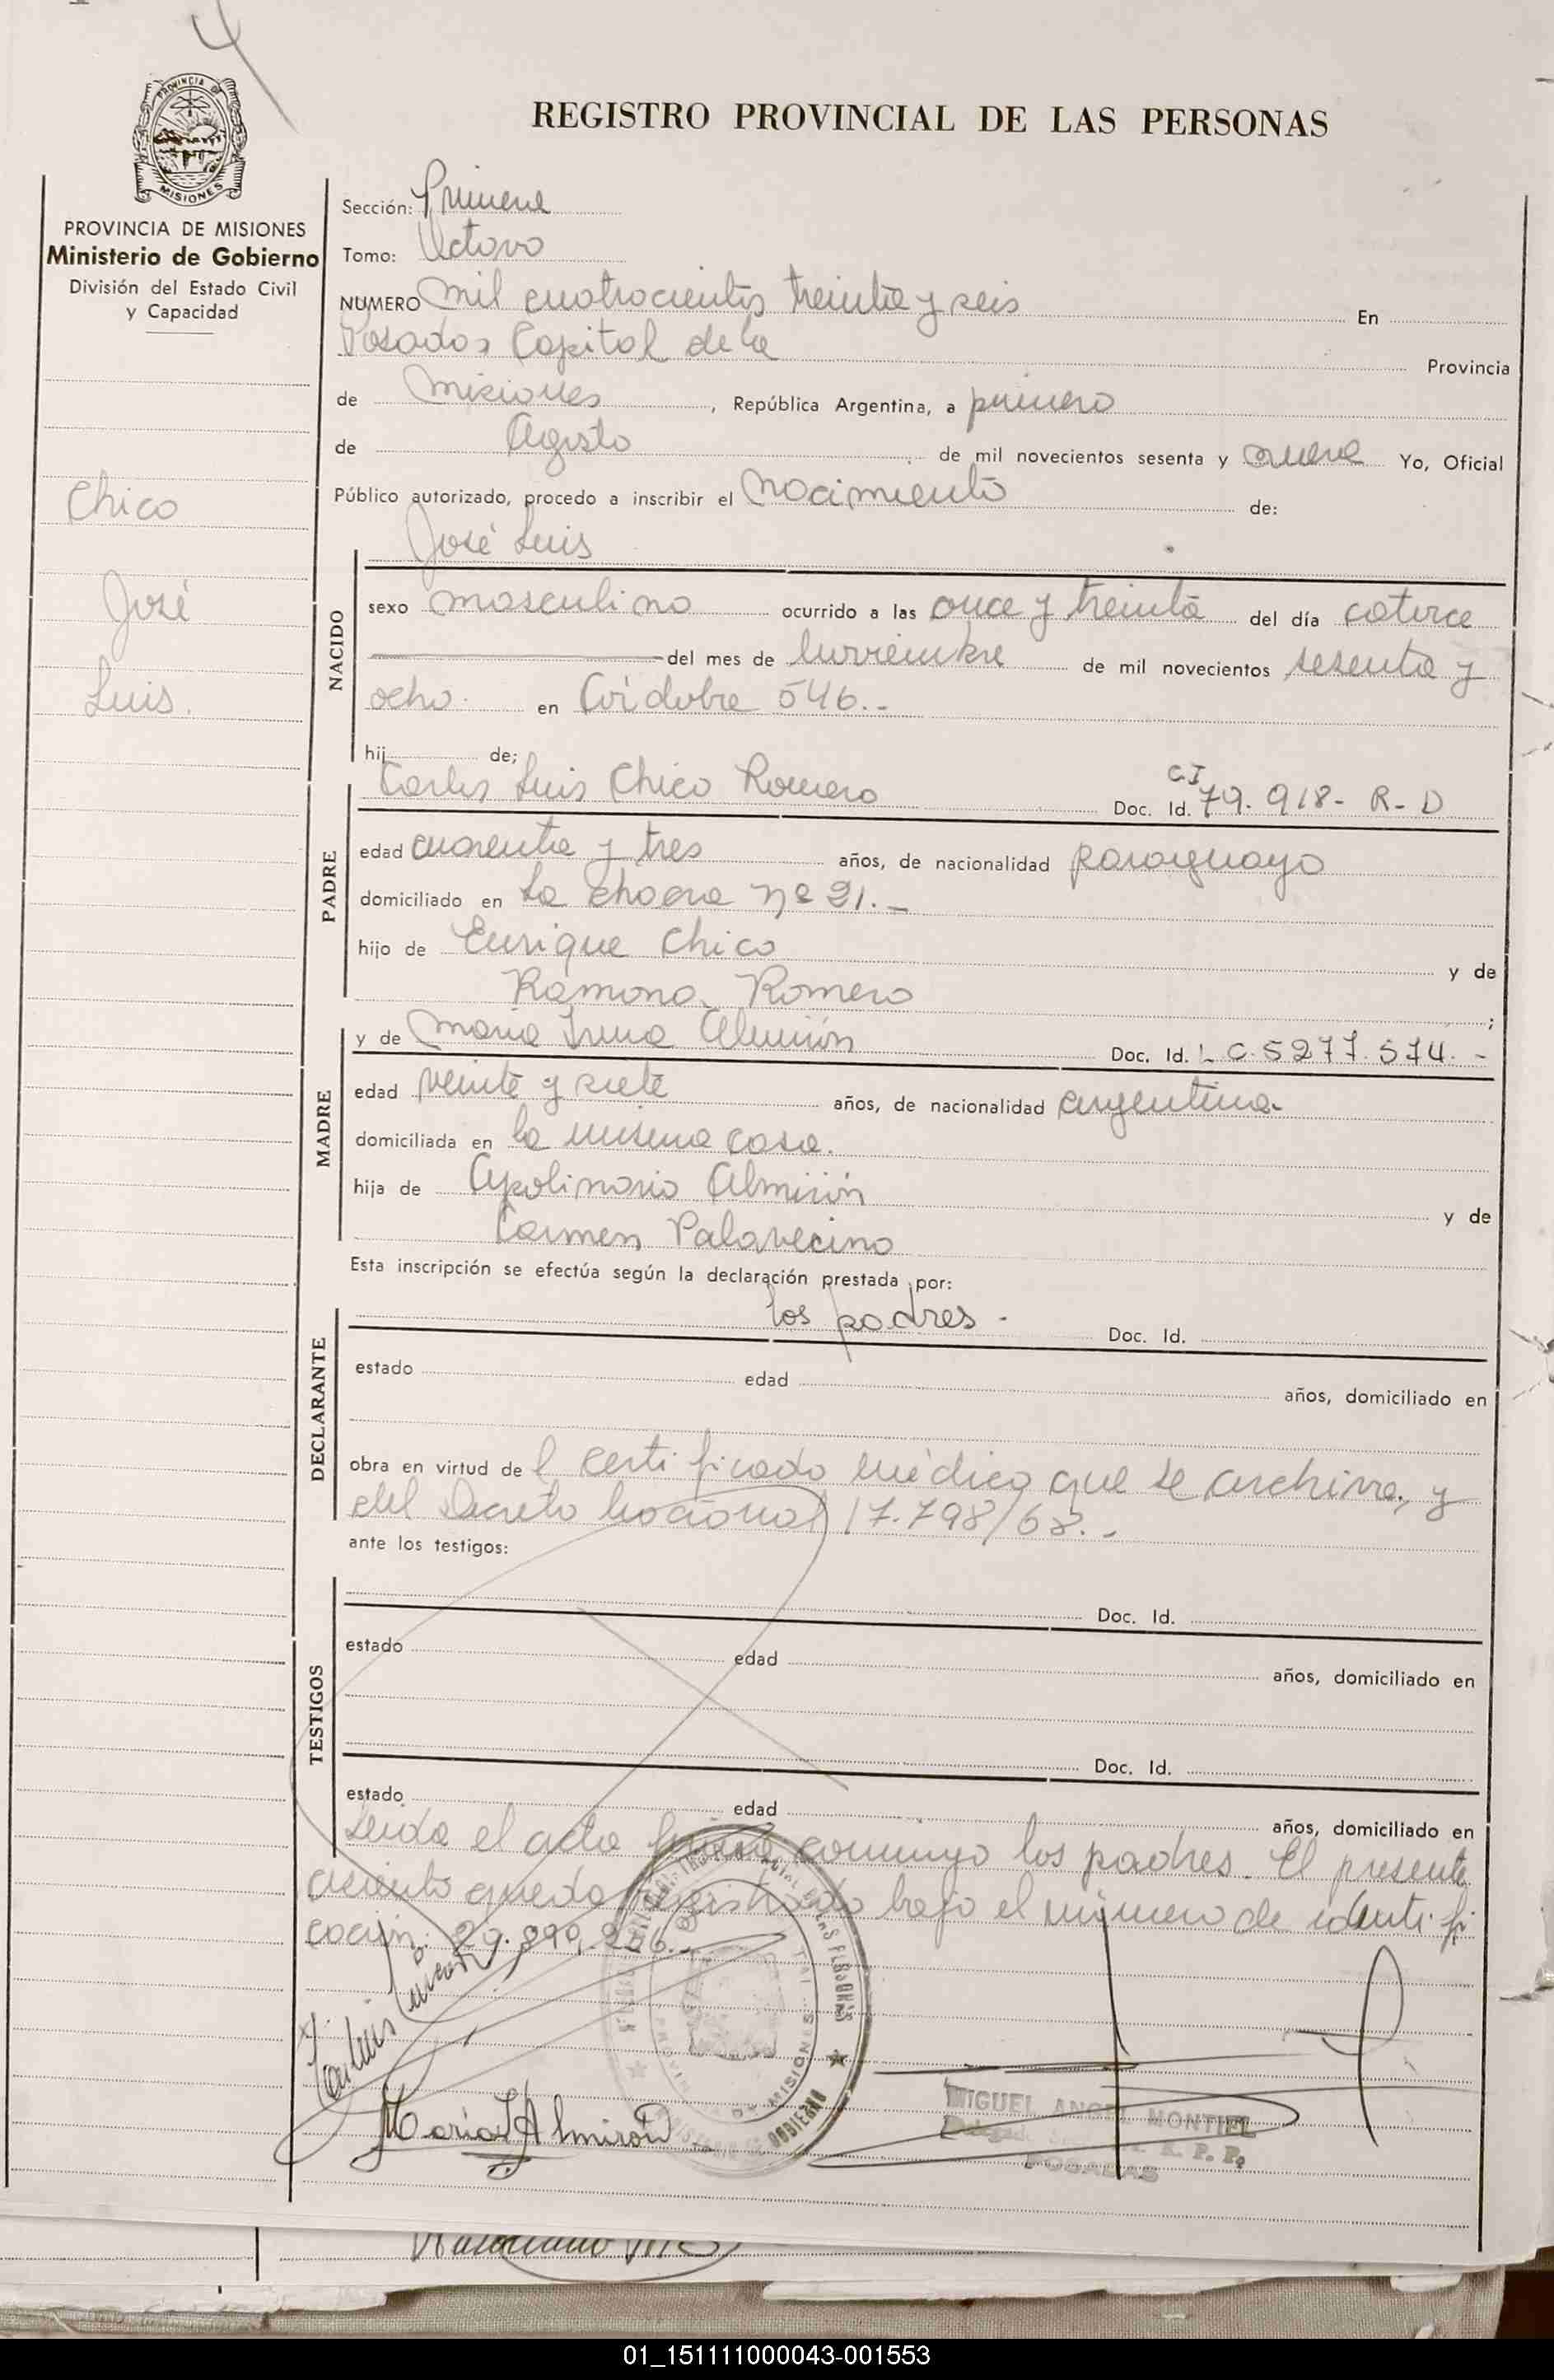 4
REGISTRO PROVINCIAL DE LAS PERSONAS
PROVINCIA DE
MISIONES
PROVINCIA DE MISIONES
Ministerio de Gobierno
División del Estado Civil
y Capacidad
Chico
José
Luis.
Sección: Primera
Tomo: Octavo
NUMERO mil cuatrocientos treinta y seis En
Posadas Capital de la Provincia
de Misiones, República Argentina, a primero
de Agosto de mil novecientos sesenta y nueve Yo, Oficial
Público autorizado, procedo a inscribir el nacimiento de:
José Luis
NACIDO
sexo masculino ocurrido a las once y treinta del día catorce
del mes de noviembre de mil novecientos sesenta y
ocho. en Córdoba 546.-
hij de;
Carlos Luis Chico Romero Doc. Id. C.I 79.918- R- D
PADRE
edad cuarenta y tres años, de nacionalidad paraguayo
domiciliado en La chacra nº 21.-
hijo de Enrique Chico y de
Ramona Romero ;
y de Maria Irma Almirón Doc. Id. L.C.5277.574.-
MADRE
edad veinte y siete años, de nacionalidad argentina.
domiciliada en la misma casa.
hija de Apolinario Almirón y de
Carmen Palavecino
Esta inscripción se efectúa según la declaración prestada por:
los padres - Doc. Id.
DECLARANTE
estado edad años, domiciliado en
obra en virtud de l certificado médico que se archiva, y
del Decreto Nacional 17.798/68.-
ante los testigos:
Doc. Id.
TESTIGOS
estado edad años, domiciliado en
Doc. Id.
estado edad años, domiciliado en
Leida el acta firman conmigo los padres. El presente
asiento queda registrado bajo el número de identifi
cación:
Maria I Almirón
MISIONES
GOBIERNO
MIGUEL ANGEL MONTIEL
Delegado R. P. P.
POSADAS
01_151111000043-001553